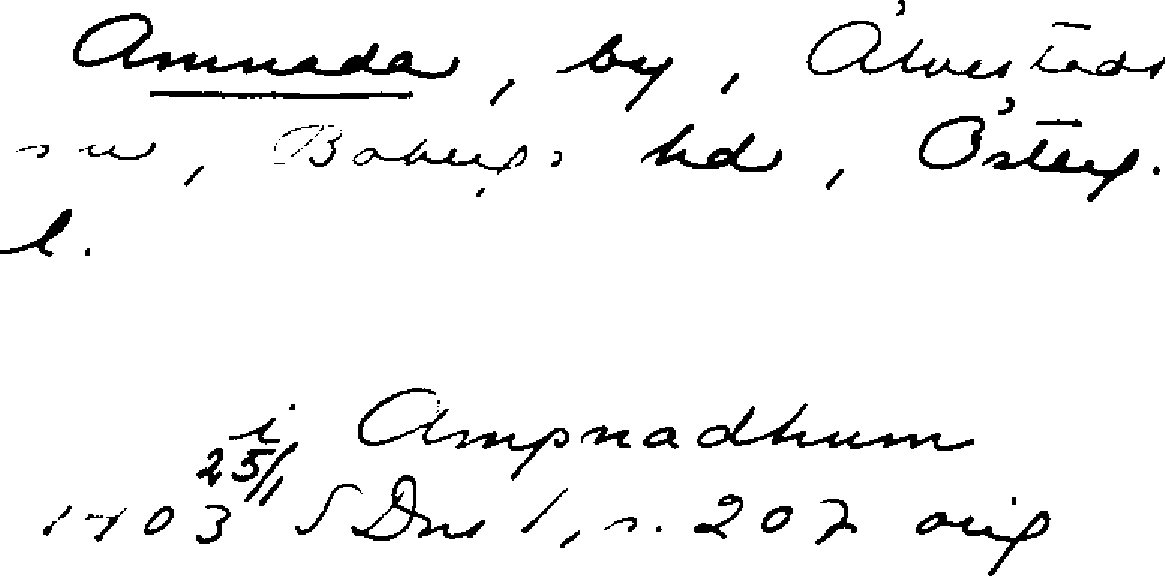 Amnada, by, Älvestads
sn, Bobergs hd, Österg.
l.
i Ampnadhum
1403 25/1 SDns 1, s. 207 orig